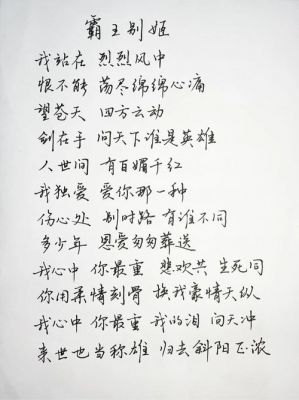 霸王别姬
我站在 烈烈风中
恨不能 荡尽绵绵心痛
望苍天 四方云动
剑在手 问天下谁是英雄
人世间 有百媚千红
我独爱 爱你那一种
伤心处 别时路 有谁不同
多少年 恩爱匆匆葬送
我心中 你最重 悲欢共 生死同
你用柔情刻骨 换我豪情天纵
我心中 你最重 我的泪 向天冲
来世也当称雄 归去斜阳正浓